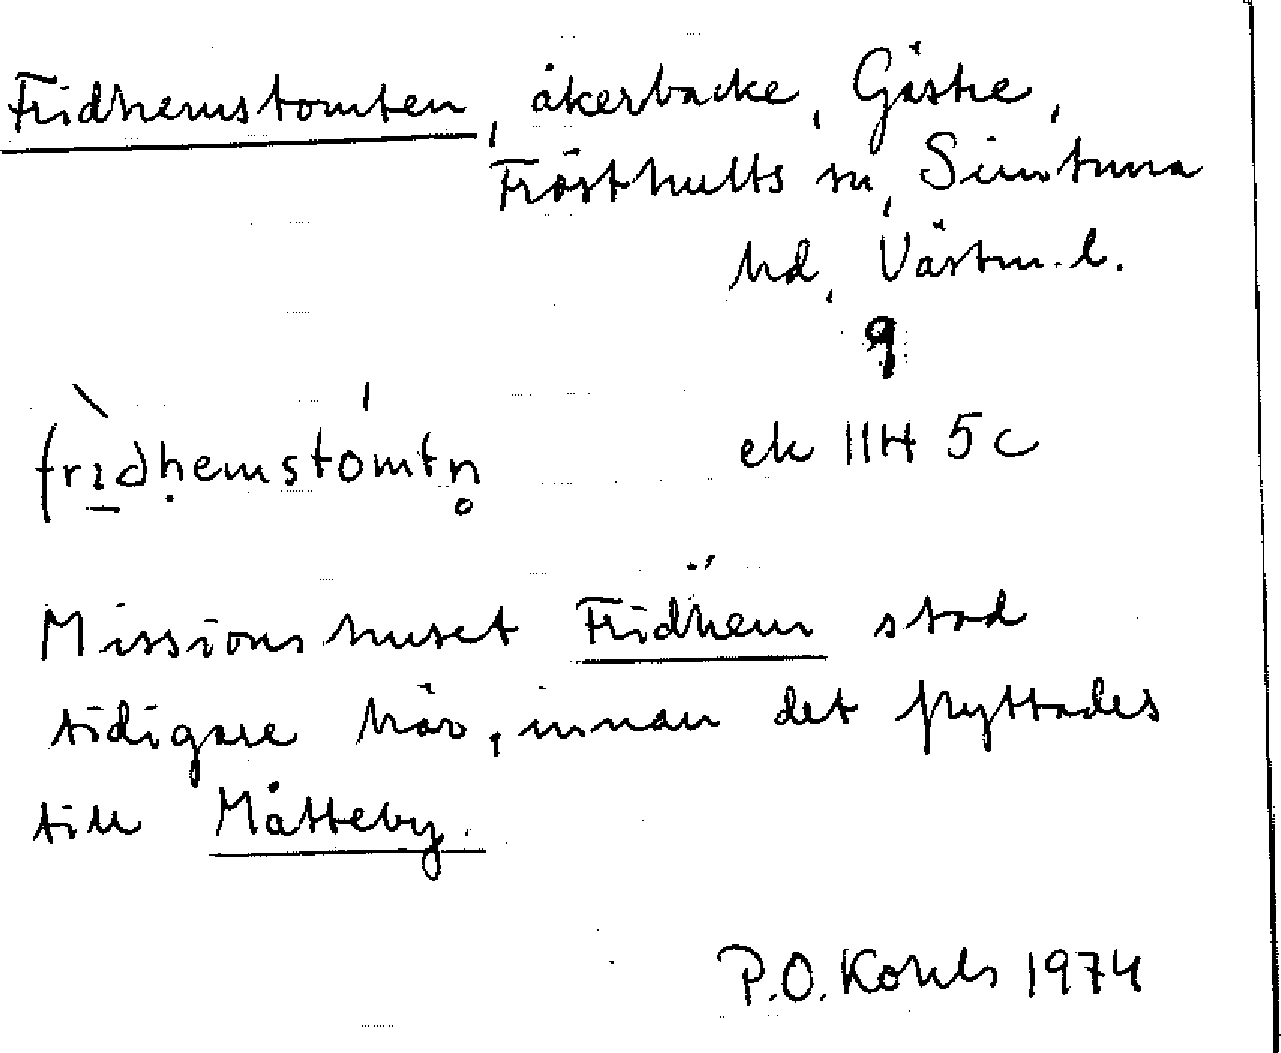 Fridhemstomten, åkerbacke, Gästre,
Frösthults sn, Simtuna
hd, Västm. l.
9
fridhemstomtn
ek 11H 5c
Missionshuset Fridhem stod
tidigare här, innan det flyttades
till Måtteby.
P.O. 1974